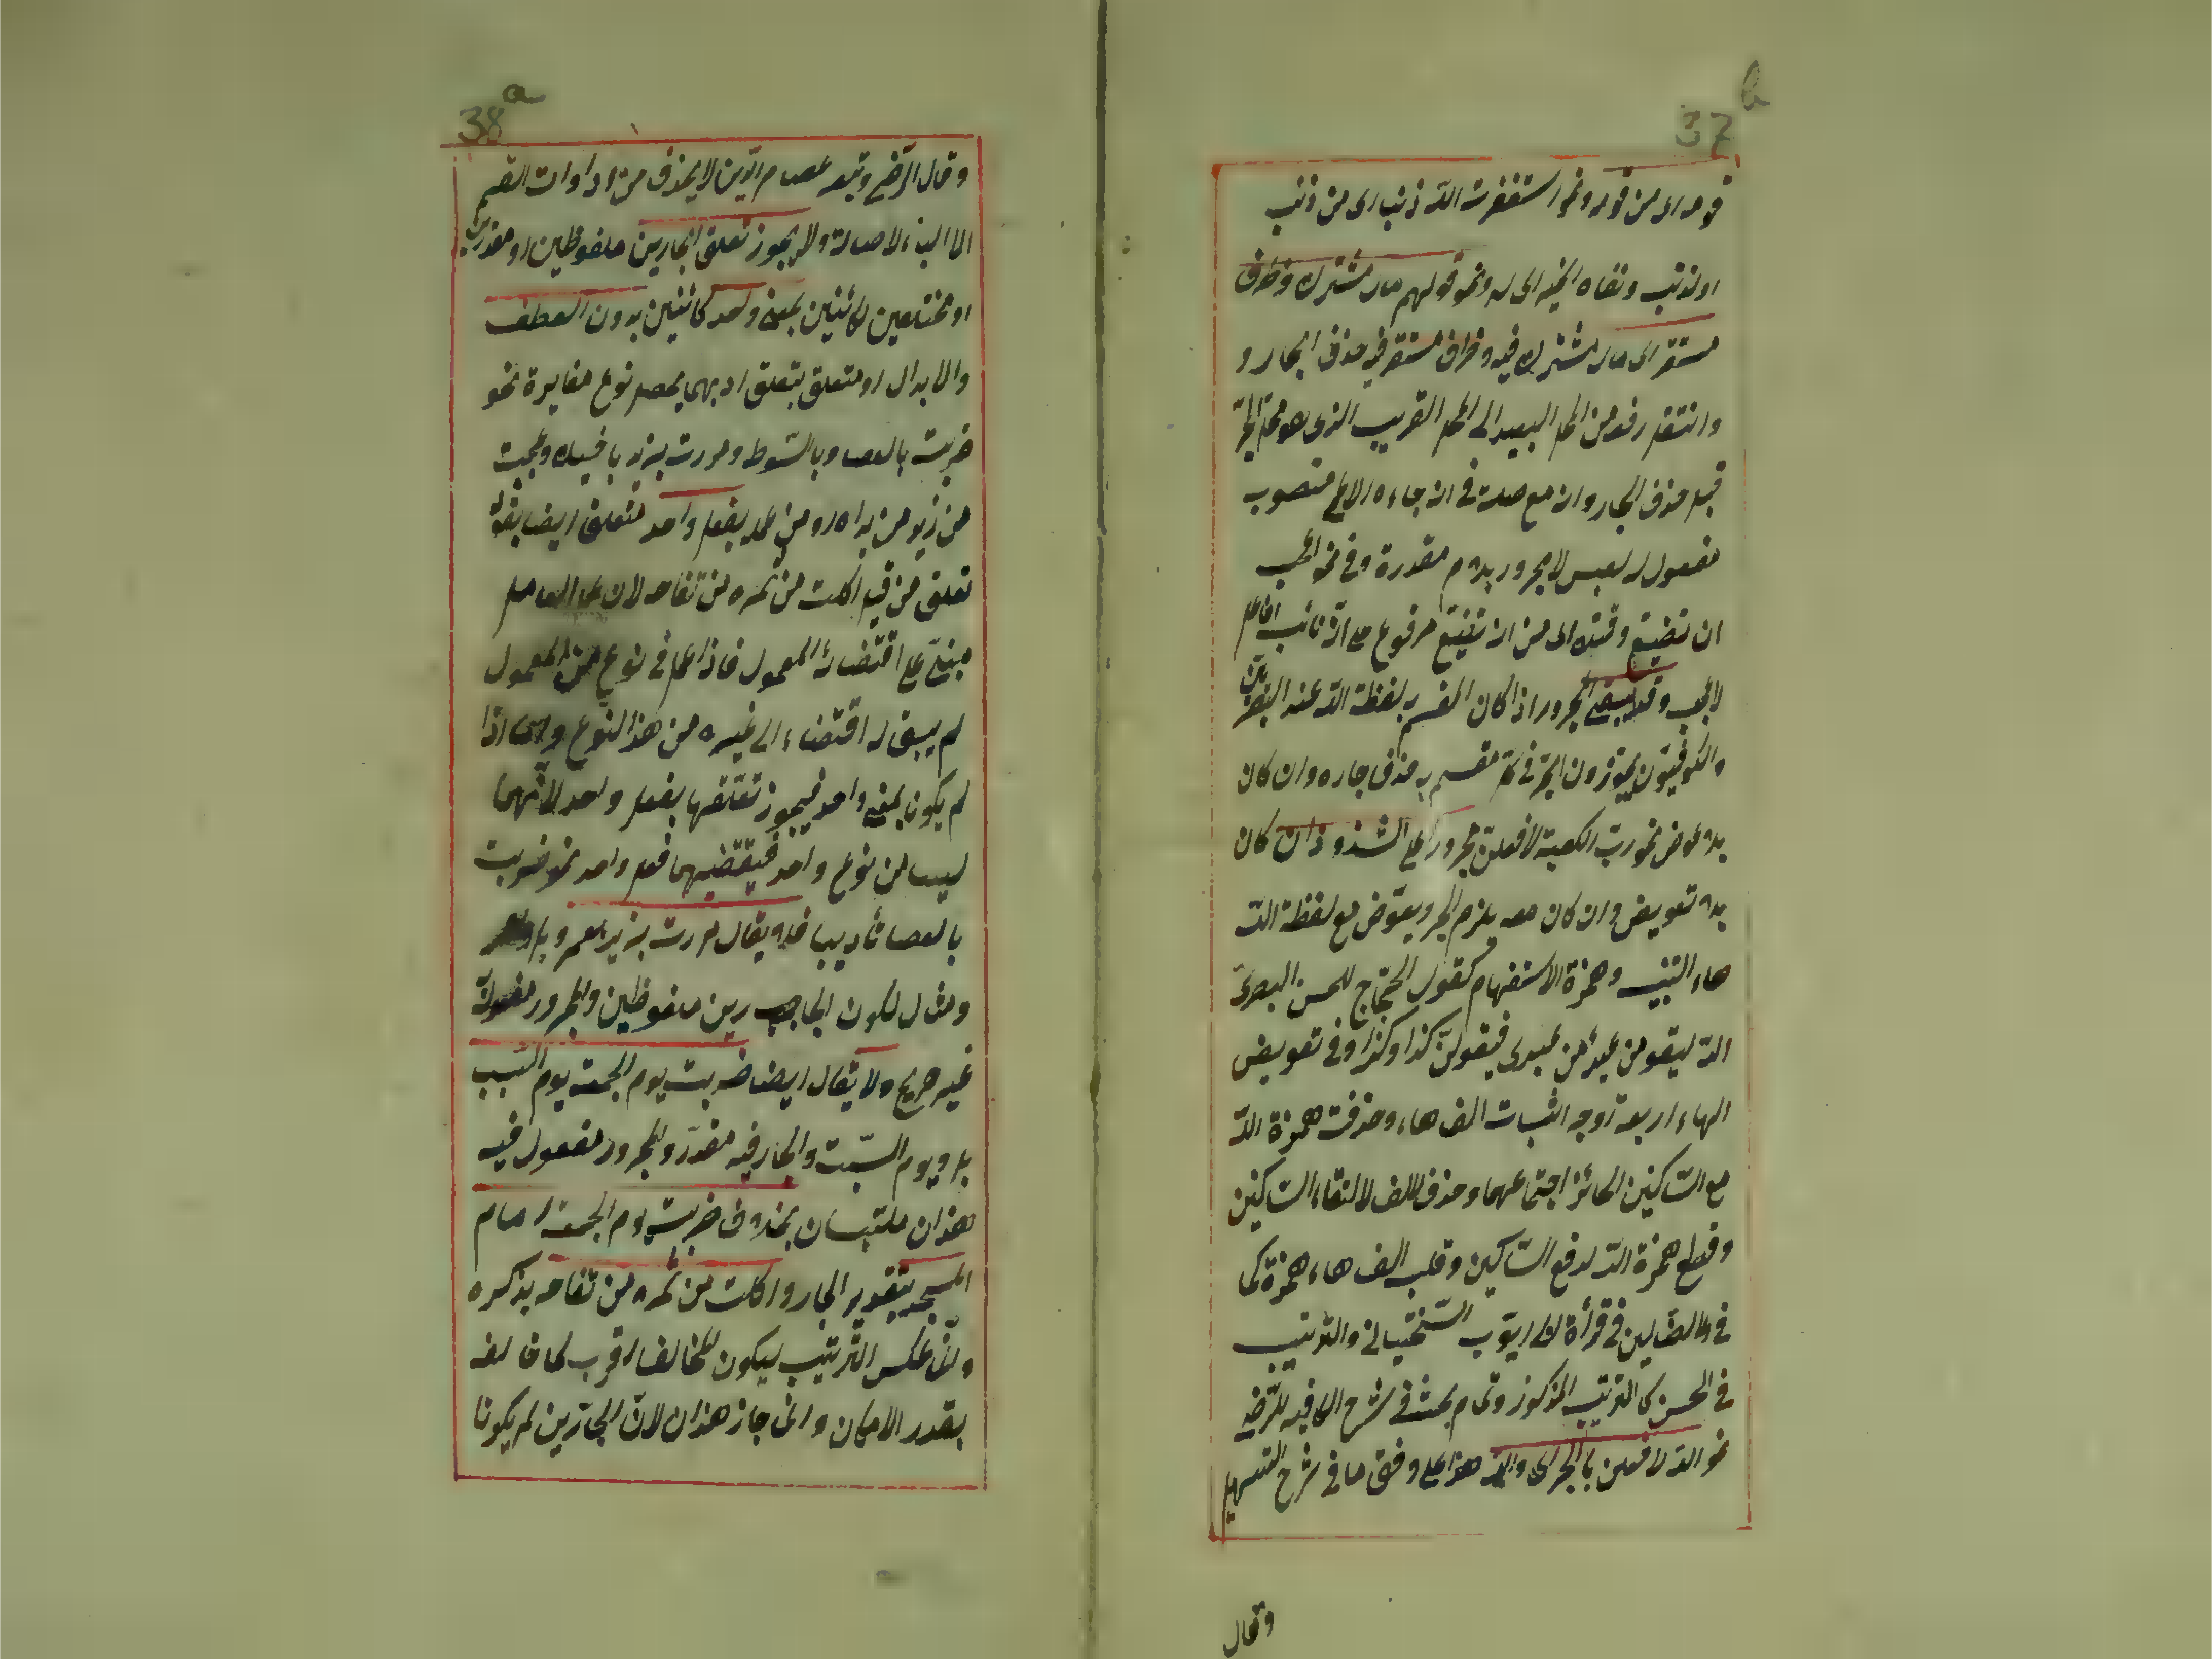 37 b
قومه اى من قومه ونحو استغفرت الله ذنبا اى من ذنب
او لذنب ونقاه الخير اى له ونحو قولهم مال مشترك وظرف
مستقر اى مال مشترك فيه وظرف مستقر فيه حذف الجار و
وانتقل رفعه من المحل البعيد الى المحل القريب الذى هو محل الجر
قبله حذف الجار وان مع صلته فى ان جاءه الاعمى منصوب
مفعول له لعبس لا مجرور بلام مقدرة وفى نحو اعجب
ان تضيّع وقتك اى من ان تضيّع مرفوع على انه نائب الفاعل
لاعجب وقد يبقى المجرور اذا كان المقسم به لفظة الله عند البصريين
والكوفيّون يجوّزون الجرّ فى كل مقسم به حذف جاره وان كان
بلا عوض نحو ربّ الكعبة لافعلنّ مجرورا على الشذوذ ان كان
بلا تعويض وان كان معه يلزم الجر ويعوّض مع لفظة الله
هاء التنبيه وهمزة الاستفهام كقول الحجّاج للحسن البصرىّ
الله ليقومنّ عبد من عبيدى فيقولنّ كذا وكذا وفى تعويض
الهاء اربعة اوجه اثبات الف هاء وحذفت همزة الله
مع السّاكنين الجائز اجتماعهما وحذف الالف لالتقاء السّاكنين
وقطع همزة الله لدفع السّاكنين وقلب الف هاء همزة كما
فى ولا الضّالين فى قراءة ايّوب السّختيانى والترتيب
فى الحسن كالترتيب المذكور وتمام بحثه فى شرح الكافية للرّضى
نحو الله لافعلن بالجر اى والله هذا على وفق ما فى شرح التسهيل
وقال
38 a
وقال الرّضى وتبعه عصام الدّين لا يحذف من ادوات القسم
الا الباء لاصالته ولا يجوز تعلق الجارين ملفوظين او مقدرين
او مختلفين كائنين بمعنى واحد كائنين بدون العطف
والابدال او متعلق بتعلق احدهما يحصل نوع مغايرة نحو
ضربت بالعصا وبالسّوط ومررت بزيد باخيك وعجبت
من زيد من براه ومن بفعل واحد متعلق ايضا بقوله
تعلق من قبيل اكلت من ثمره من تفاحه لان عمل العامل
مبنىّ على اقتضائه المعمول فاذا عمل فى نوع من المعمول
لم يبق له اقتضاء الى غيره من هذا النوع واما اذا
لم يكونا بمعنى واحد فيجوز تعلقهما بفعل واحد لانّهما
ليسا من نوع واحد فيقتضيهما فعل واحد نحو ضربت
بالعصا تأديبا فلا يقال مررت بزيد بعمرو بل وبعمرو
ومثال لكون الجارين ملفوظين والمجرور مفعولا
غير صريح ولا يقال ايضا ضربت يوم الجمعة يوم السّبت
بل ويوم السّبت والجار فيه مقدّر والمجرور مفعول فيه
هذان ملتبسان بخلاف ضربت يوم الجمعة امام
المسجد بتقدير الجار واكلت من ثمره من تفاحه بذكره
وانّما عكس التّرتيب ليكون المخالف اقرب لما خالفه
بقدر الامكان وانما جاز هذان لانّ الجارّين لم يكونا